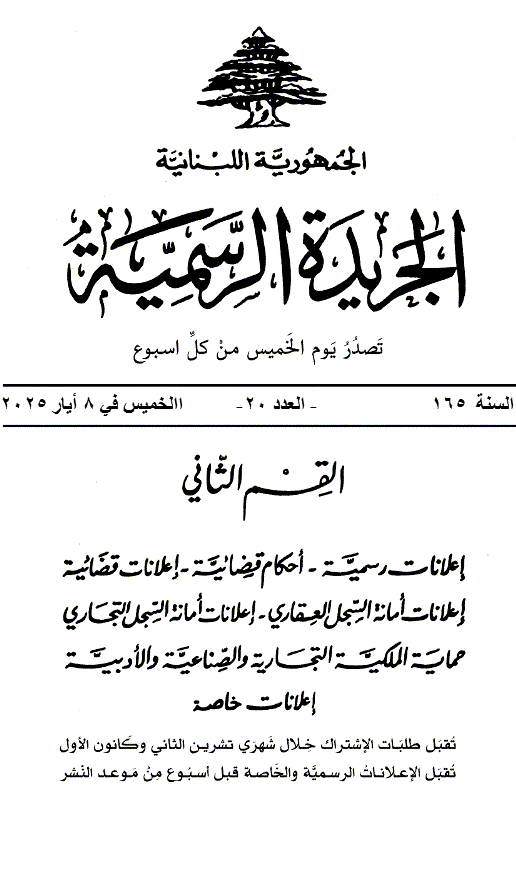 الجمهوريَّة اللبنانيَّة
الجريدة الرسميَّة
تَصدُرُ يَوم الخَميس منْ كلِّ اسبوع
السنة ١٦٥ - العدد ٢٠- االخميس في ٨ أيار ٢٠٢٥
القِسْم الثّاني
إعلانات رسميَّة - أحكام قضائيَّة - إعلانات قضائية
إعلانات أمانة السِّجل العقاري - إعلانات أمانة السِّجل التجاري
حماية الملكيَّة التجارية والصِّناعيَّة والأدبيَّة
إعلانات خاصة
تُقبَل طلبَات الإشتراك خِلال شَهرَي تشرين الثاني وكَانون الأول
تُقبَل الإعلاناتُ الرسميَّة والخَاصة قبل أسبُوع مِنْ مَوعد النّشر